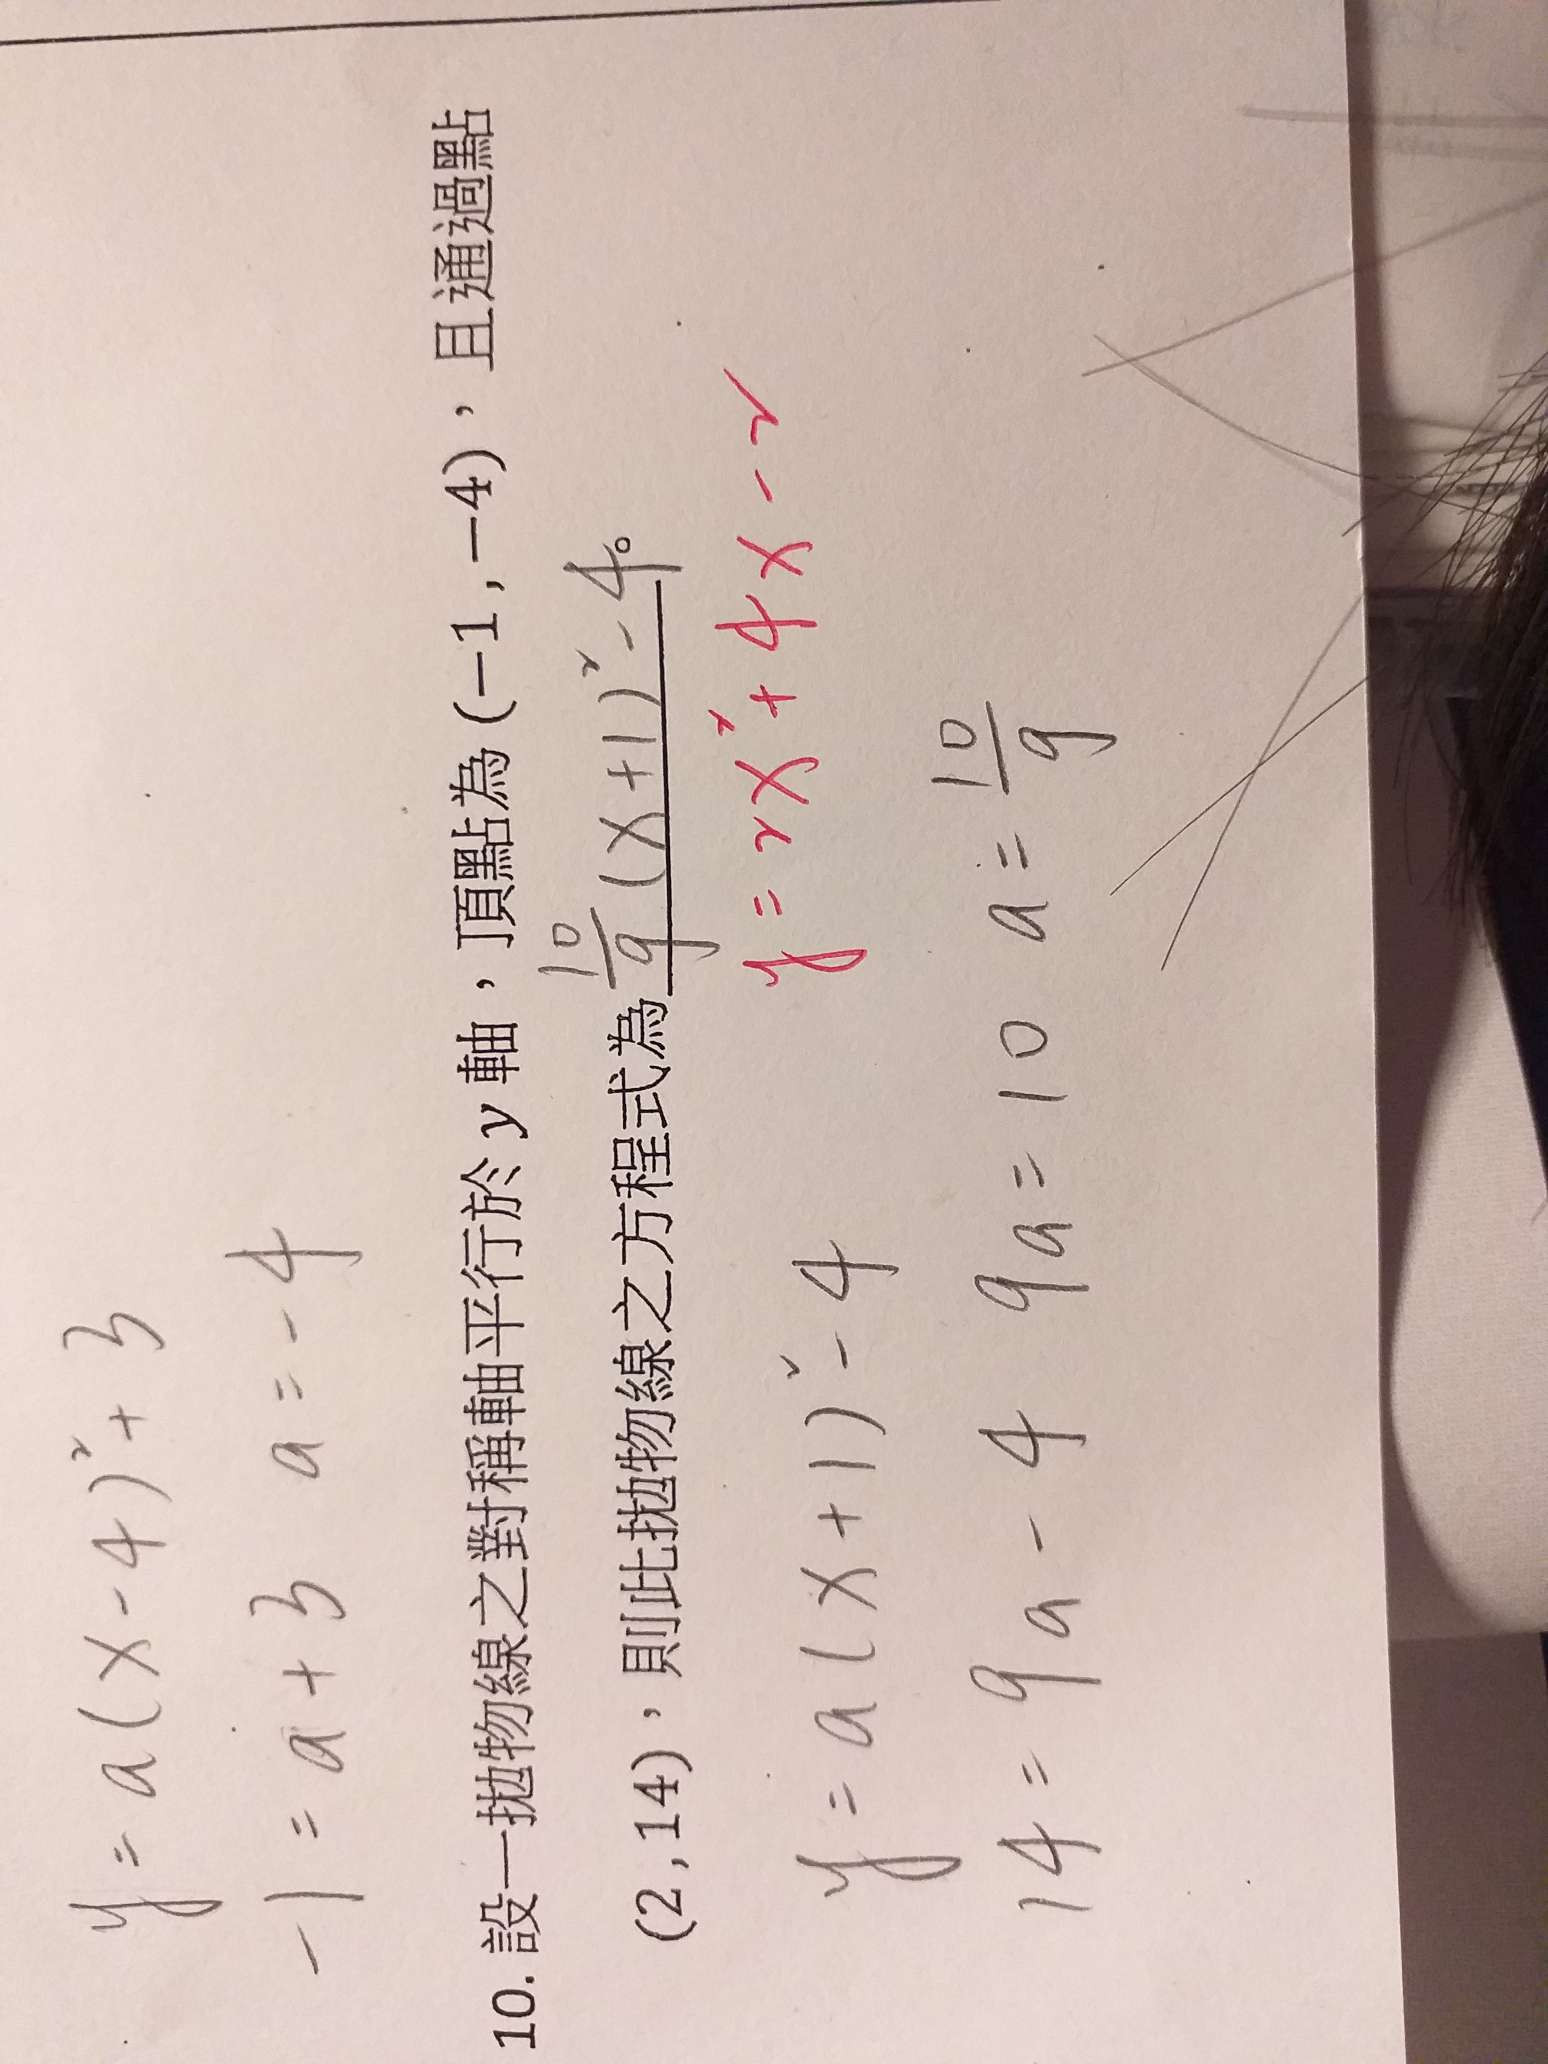 y = a(x-4)²+3
-1 = a+3  a = -4
10. 設一拋物線之對稱軸平行於 y 軸，頂點為 (−1 , −4)，且通過點
(2 , 14)，則此拋物線之方程式為 10/9 (x+1)²-4。
y = 2x²+4x-2
y = a(x+1)²-4
14 = 9a-4  9a = 10  a = 10/9